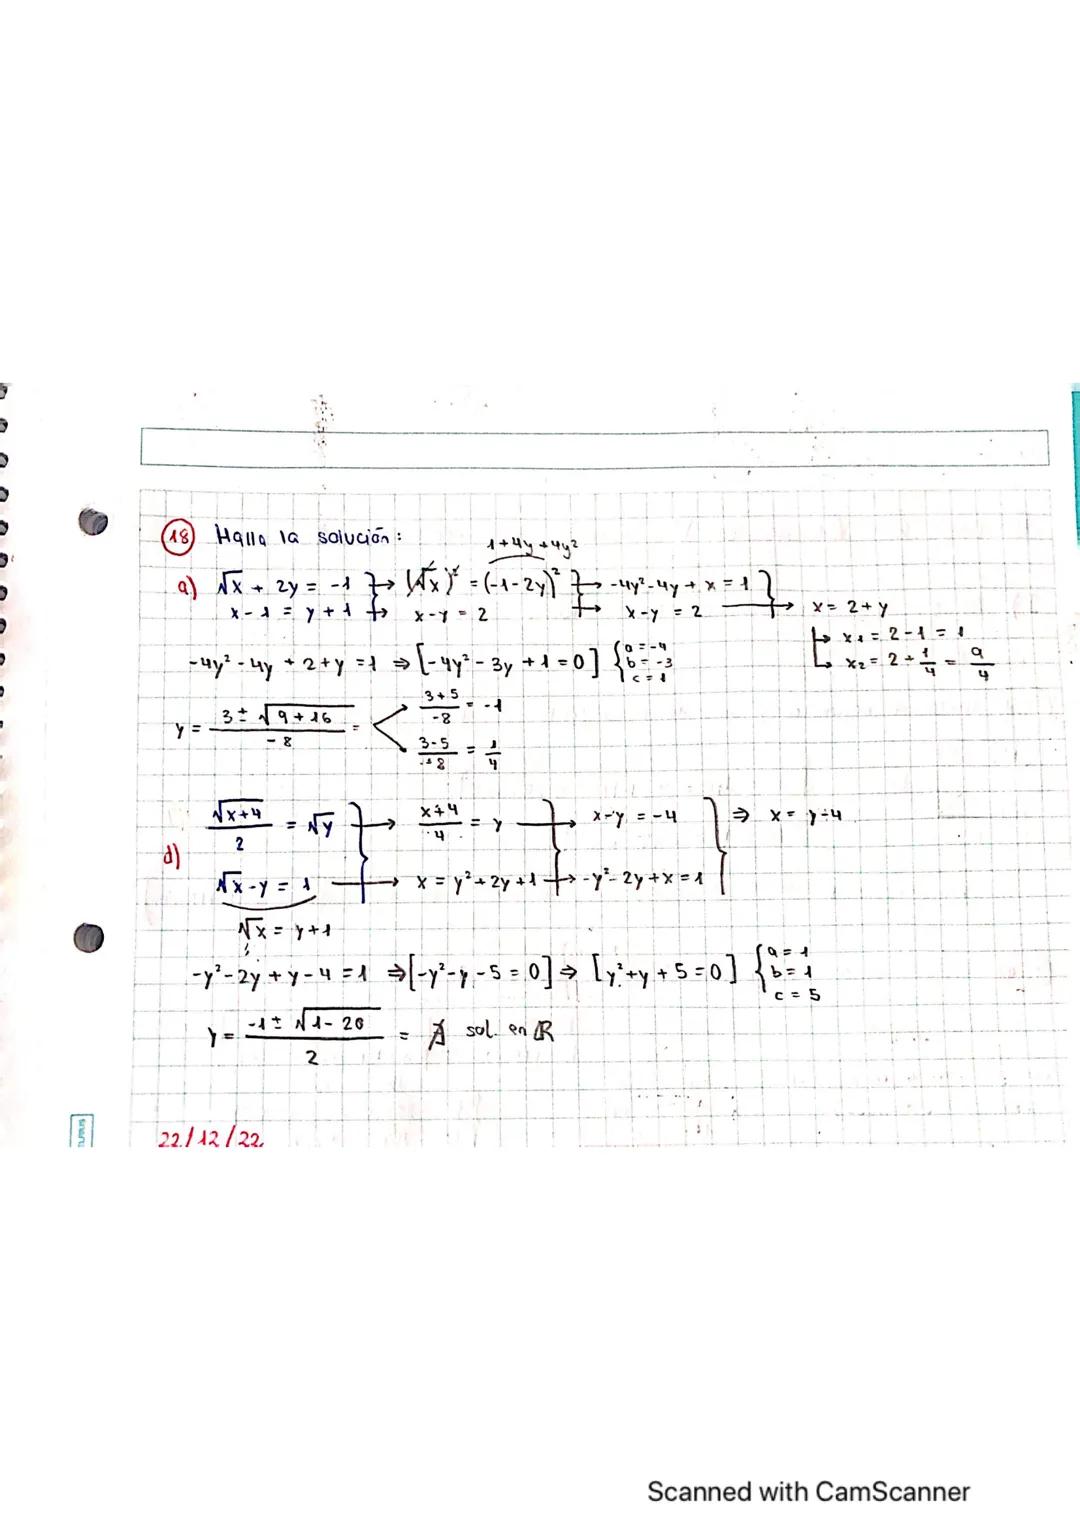 18 Halla la solución:
1+4y+4y²
a) √x + 2y = -1 } → (√x)² = (-1-2y)² } → -4y²-4y+x = 1 }
x-1 = y+1 → x-y = 2 → x-y = 2 → x = 2+y
↳ x₁ = 2-1 = 1
-4y²-4y+2+y = 1 ⇒ [-4y²-3y+1=0] { a=-4 b=-3 c=1
↳ x₂ = 2+1/4 = 9/4
y = (3±√9+16)/-8 = < (3+5)/-8 = -1
(3-5)/-8 = 1/4
d) √x+4/2 = √y } → x+4/4 = y } → x-y = -4 } ⇒ x = y-4
√x-y = 1 → x = y²+2y+1 → -y²-2y+x = 1
√x = y+1
-y²-2y+y-4 = 1 ⇒ [-y²-y-5=0] ⇒ [y²+y+5=0] { a=1 b=1 c=5
y = (-1±√1-20)/2 = ∄ sol. en ℝ
22/12/22
Scanned with CamScanner